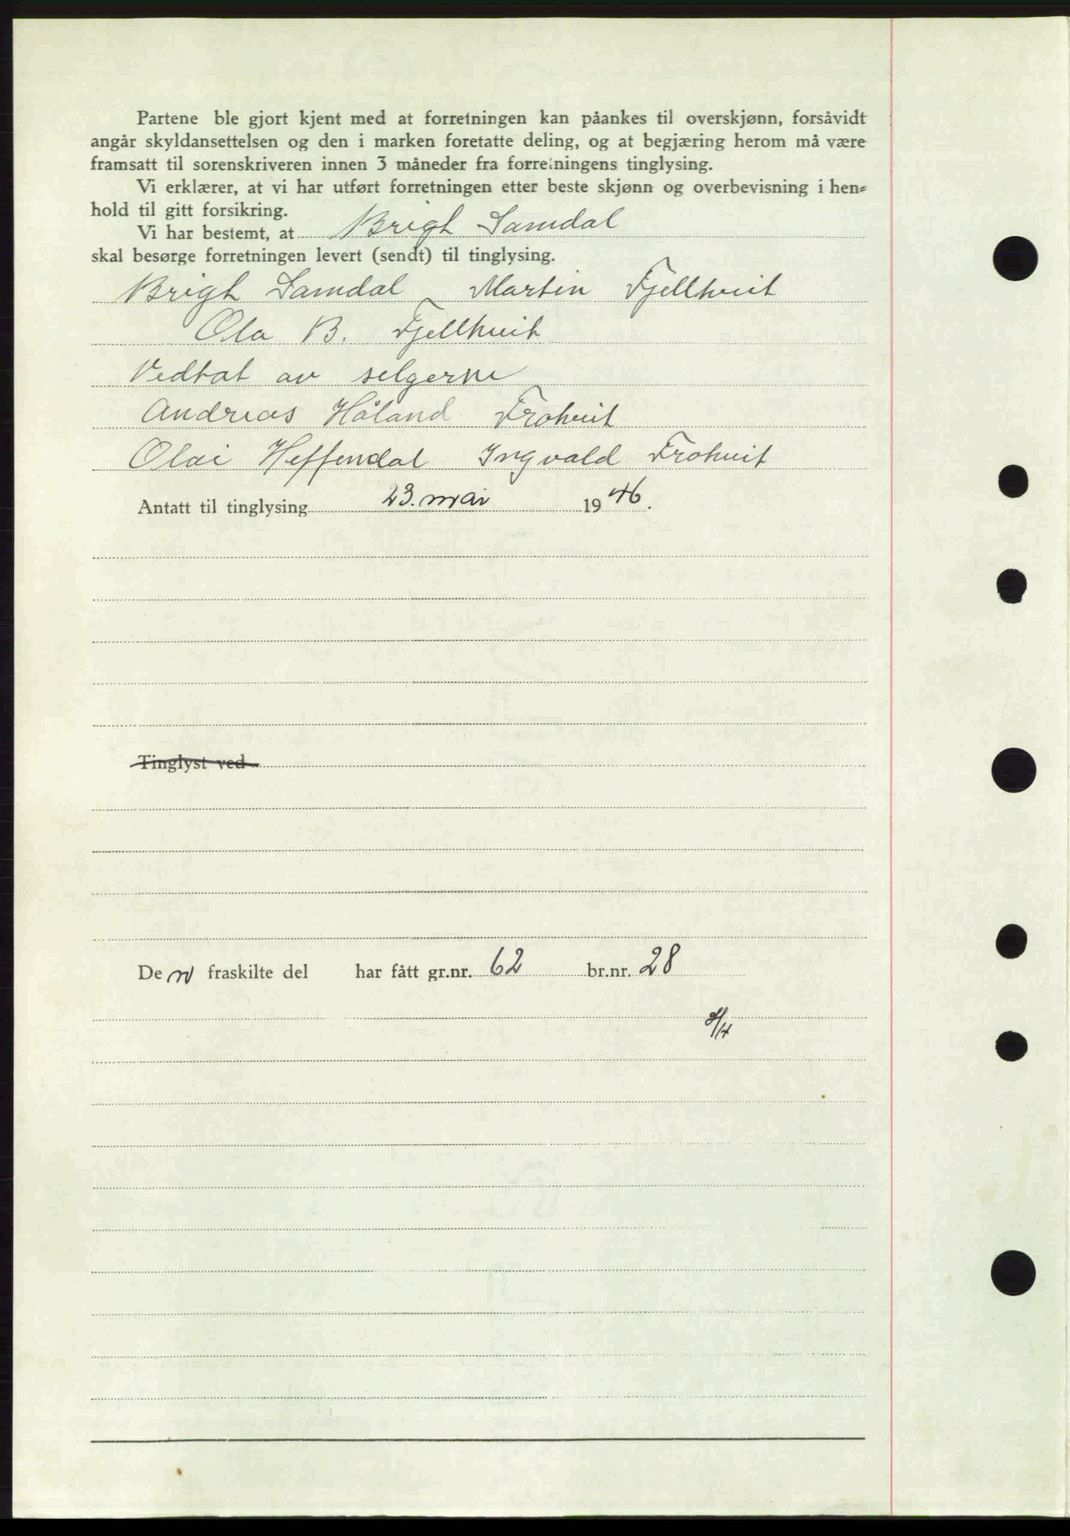 Partene ble gjort kjent med at forretningen kan påankes til overskjønn, forsåvidt
angår skyldansettelsen og den i marken foretatte deling, og at begjæring herom må være
framsatt til sorenskriveren innen 3 måneder fra forretningens tinglysing.
Vi erklærer, at vi har utført forretningen etter beste skjønn og overbevisning i hen=
hold til gitt forsikring.
Vi har bestemt, at Brigt Samdal
skal besørge forretningen levert (sendt) til tinglysing.
Brigt Samdal Martin Fjellhvit
Ola B. Fjellhvit
Vedtat av selgerne
Andreas Håland Frohvit
Olai Heffendal Ingvald Frohvit
Antatt til tinglysing 23. mai 1946.
Tinglyst ved
Den fraskilte del har fått gr.nr. 62 br.nr. 28